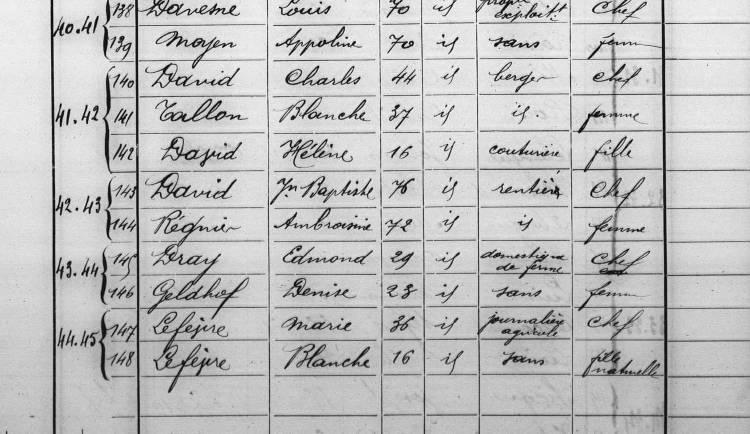 40.41 138 Davesne Louis 70 id propre exploitt. Chef
139 Moyen Appoline 70 id sans femme
41.42 140 David Charles 44 id berger chef
141 Tallon Blanche 37 id id. femme
142 David Hélène 16 id couturière fille
42.43 143 David Jn Baptiste 76 id rentier Chef
144 Régnier Ambroisine 72 id id femme
43.44 145 Dray Edmond 29 id domestique de ferme Chef
146 Geldhof Denise 23 id sans femme
44.45 147 Lefèvre Marie 36 id journalière agricole Chef
148 Lefèvre Blanche 16 id sans fille naturelle